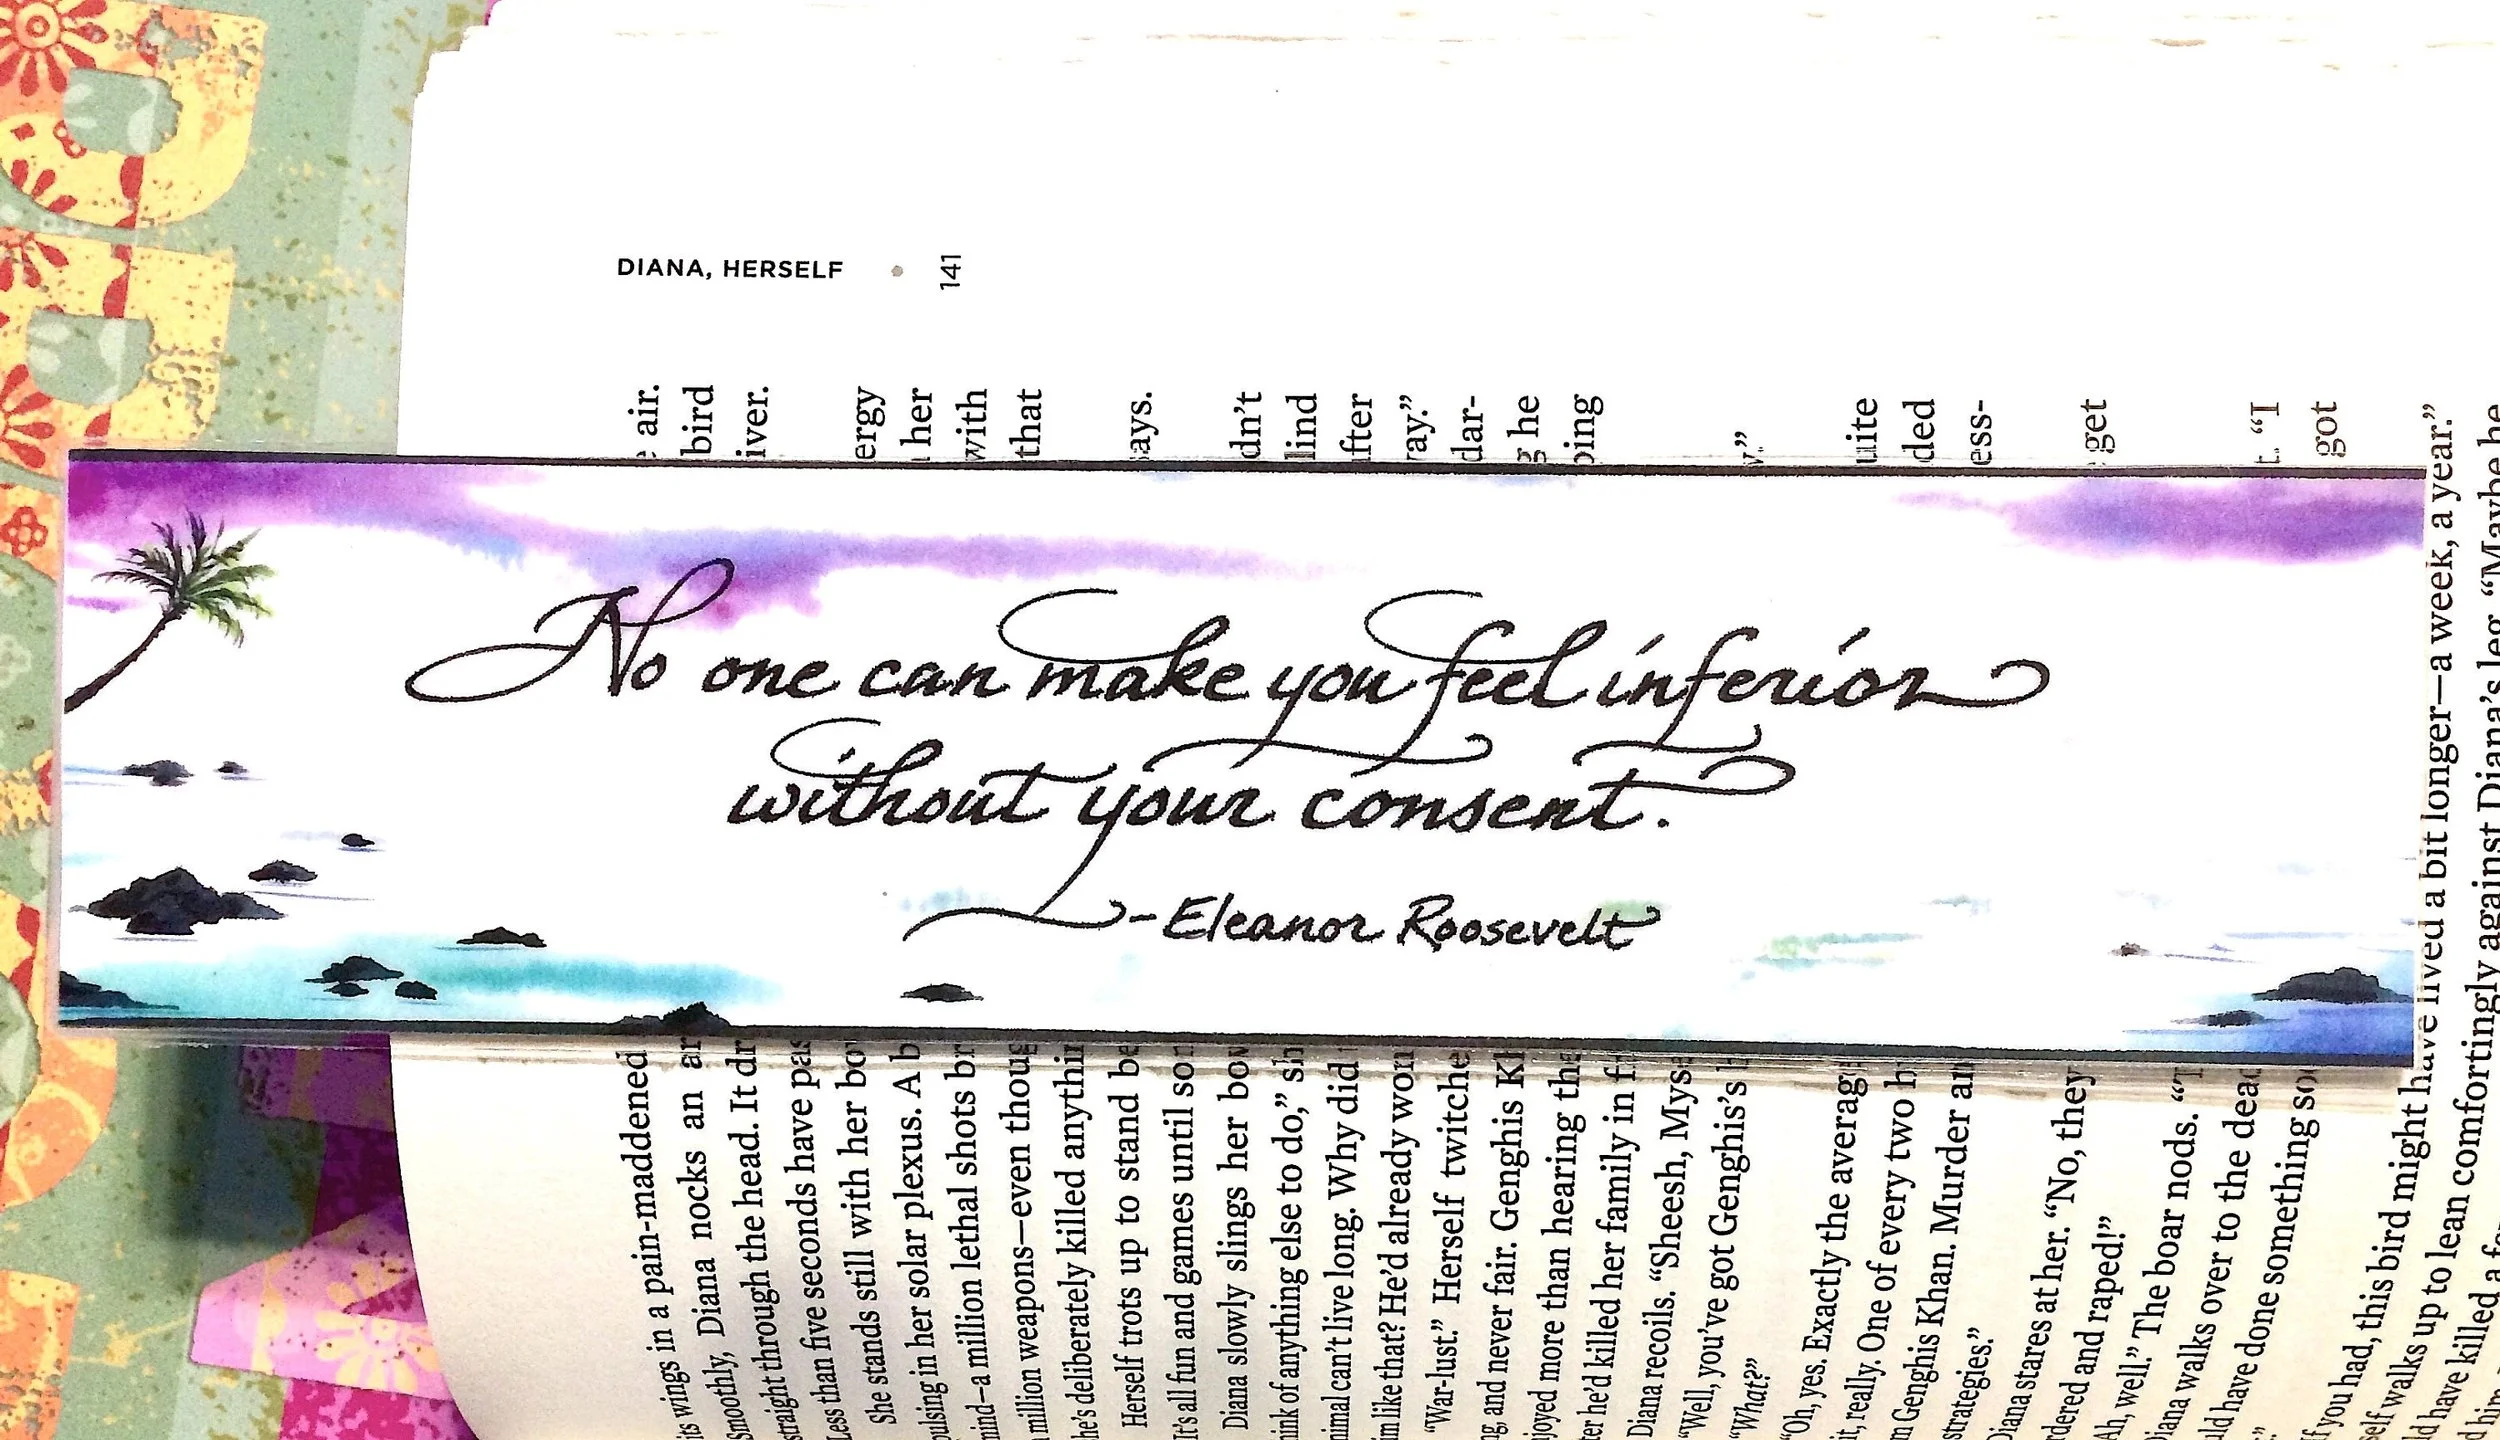 DIANA, HERSELF • 141
air.
bird
iver.
ergy
her
with
that
ays.
dn't
lind
fter
ray."
dar-
g he
ping
v."
uite
ded
ess-
get
t. "I
got
No one can make you feel inferior
without your consent.
-Eleanor Roosevelt
its wings in a pain-maddened
Smoothly, Diana nocks an ar
straight through the head. It dr
Less than five seconds have pas
She stands still with her bow
pulsing in her solar plexus. A b
mind—a million lethal shots br
million weapons—even thoug
he's deliberately killed anythin
Herself trots up to stand be
It's all fun and games until som
Diana slowly slings her bow
hink of anything else to do," sh
nimal can't live long. Why did
im like that? He'd already won
"War-lust." Herself twitche
ng, and never fair. Genghis Kh
joyed more than hearing the
ter he'd killed her family in f
Diana recoils. "Sheesh, Mys
"Well, you've got Genghis's
"What?"
"Oh, yes. Exactly the averag
it, really. One of every two h
m Genghis Khan. Murder an
strategies."
Diana stares at her. "No, they
rdered and raped!"
"Ah, well." The boar nods. "T
Diana walks over to the dead
uld have done something so
If you had, this bird might have lived a bit longer—a week, a year."
self walks up to lean comfortingly against Diana's leg. "Maybe he
d have killed a